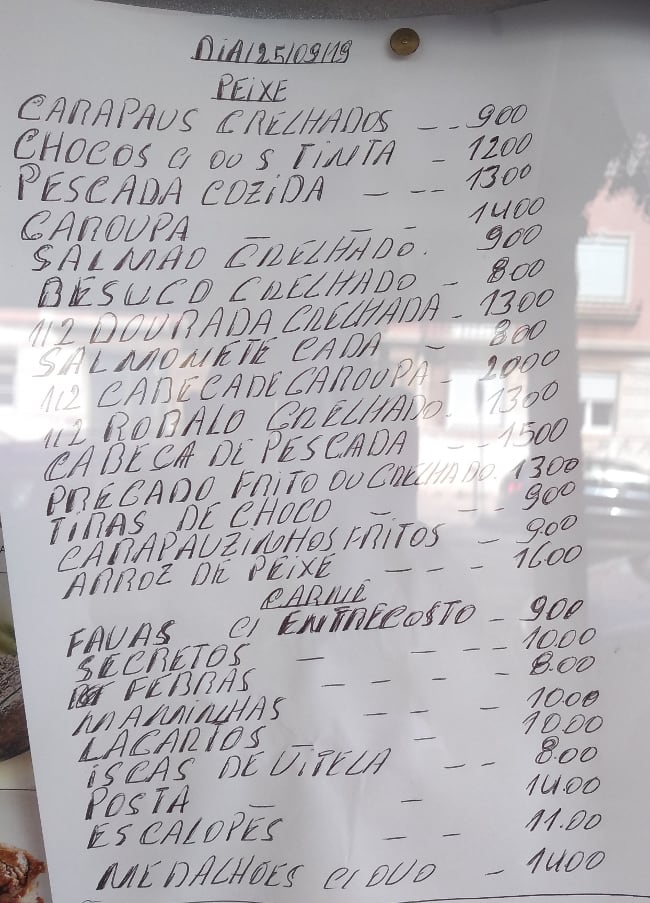 DIA/25/09/19
PEIXE
CARAPAUS GRELHADOS -- 900
CHOCOS C/ OU S TINTA - 1200
PESCADA COZIDA - -- 1300
GAROUPA - - - 1400
SALMÃO GRELHADO. 900
BESUGO GRELHADO - 800
1/2 DOURADA GRELHADA - 1300
SALMONETE CADA - 800
1/2 CABECA DE GAROUPA - 2000
1/2 ROBALO GRELHADO. 1300
CABECA DE PESCADA -- 1500
PREGADO FRITO OU GRELHADO. 1300
TIRAS DE CHOCO - -- 900
CARAPAUZINHOS FRITOS - 9.00
ARROZ DE PEIXE - - - 16.00
CARNE
FAVAS C/ ENTRECOSTO - 900
SECRETOS - - -- 10.00
FEBRAS - - - - 8.00
MAMINHAS - - - 10.00
LAGARTOS - 10.00
ISCAS DE VITELA -- 8.00
POSTA - - 14.00
ESCALOPES - - 11.00
MEDALHÕES C/ OVO - 14.00